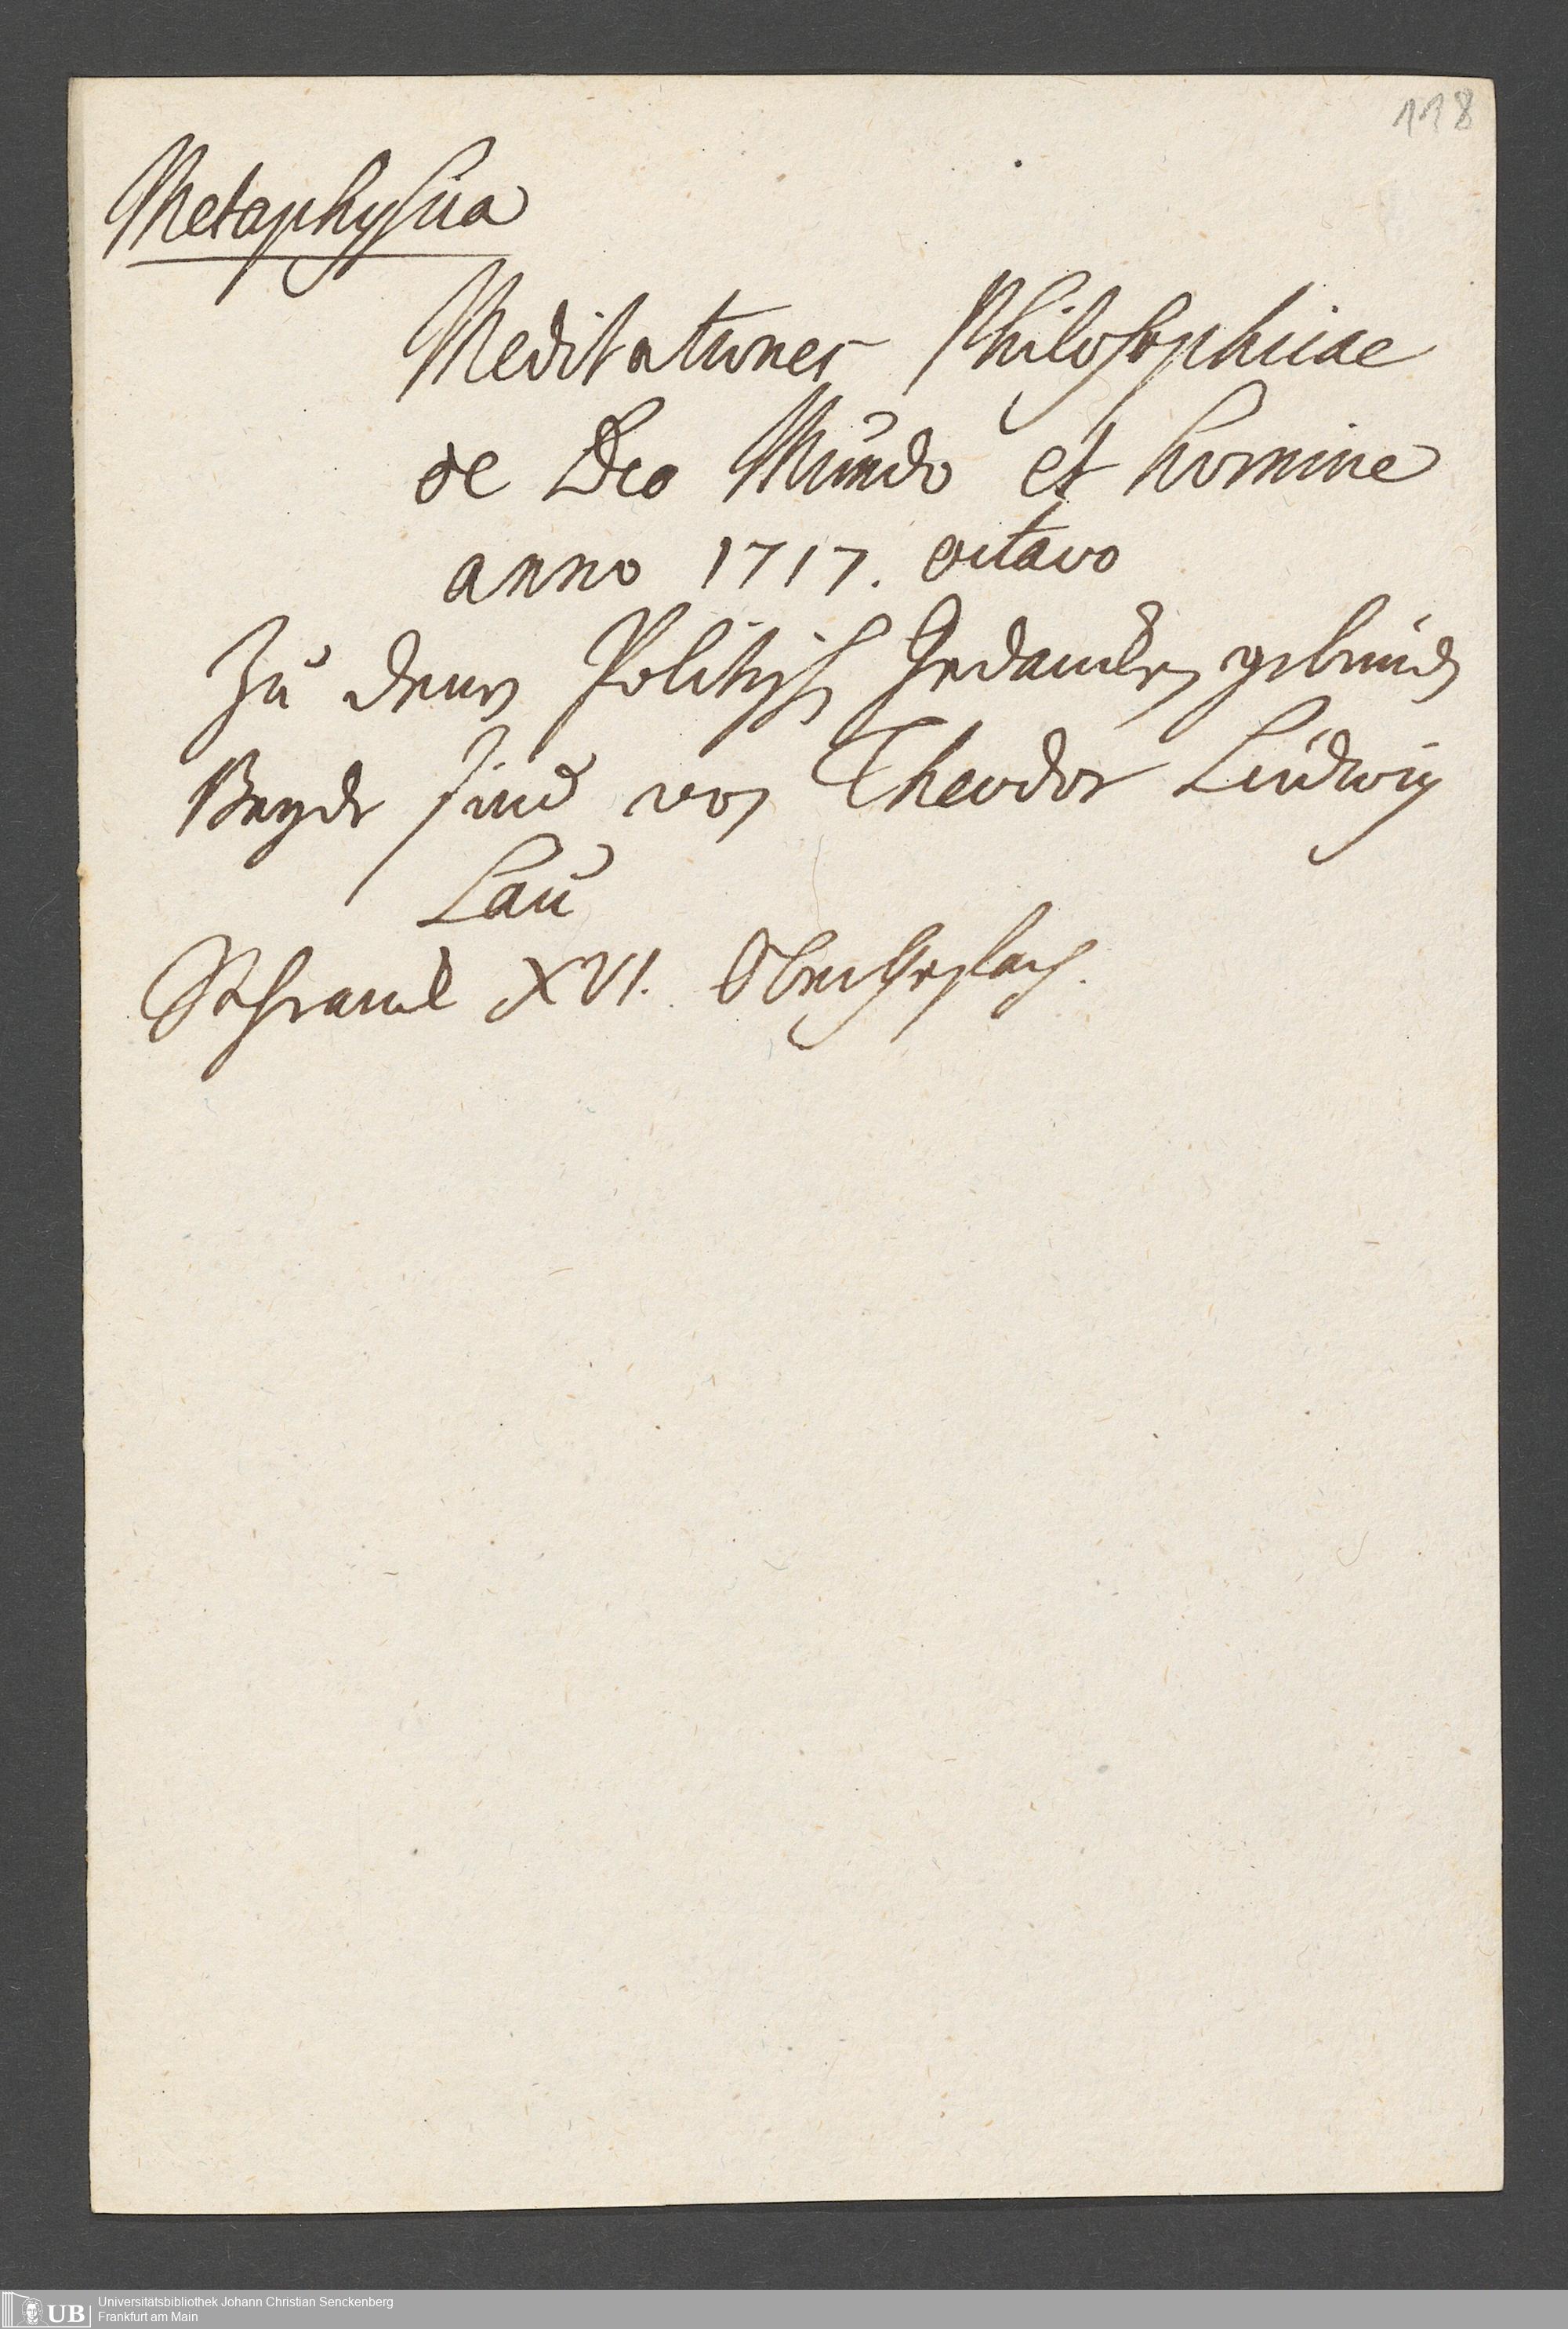 118
Metaphysica
Meditationes Philosophicae
de Deo Mundo et homine
anno 1717. octavo
Zu denen Politisch Gedancken gebunden
Beyde sind von Theodor Ludwig
Lau
Schranck XVI. Ober
UB Universitätsbibliothek Johann Christian Senckenberg
Frankfurt am Main